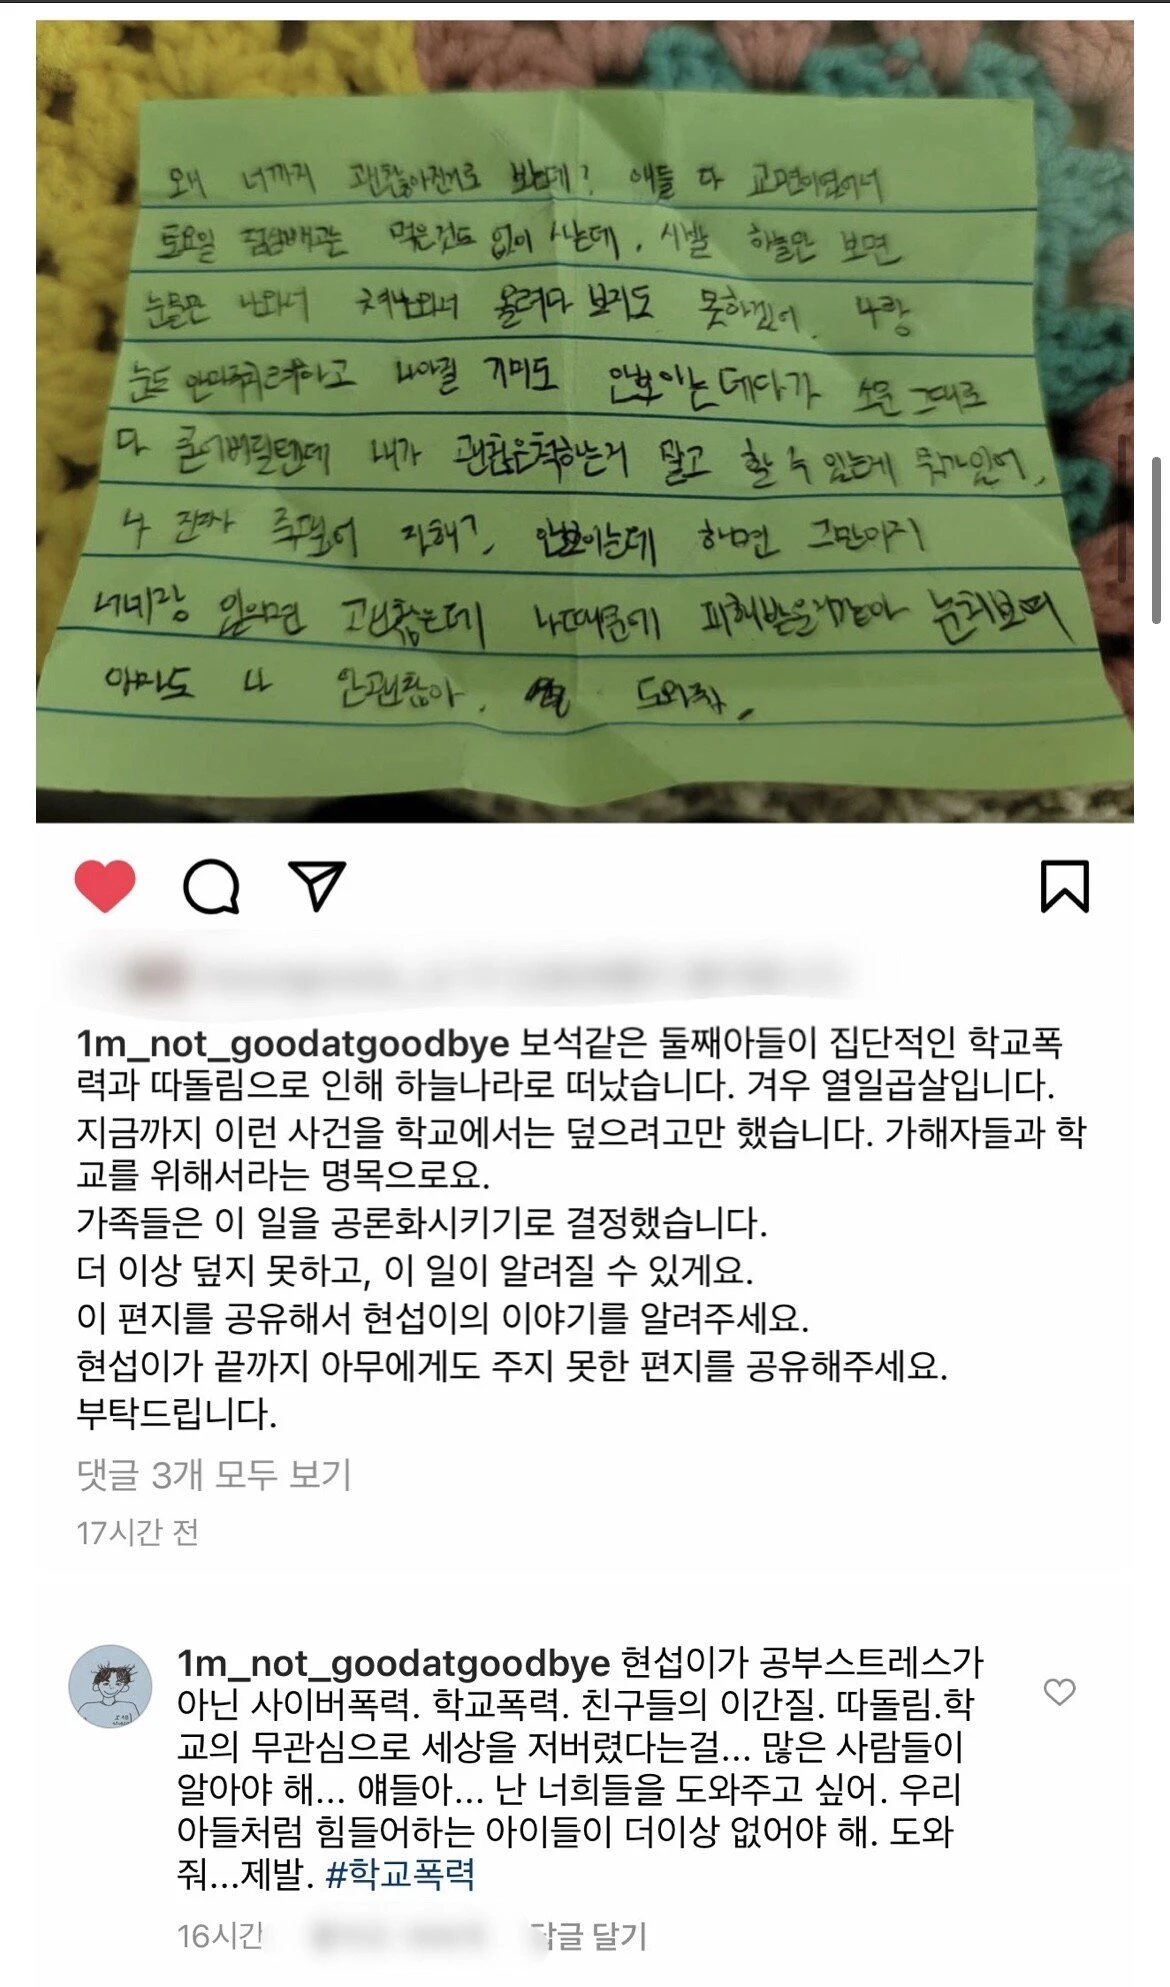 왜 너까지 괜찮아진거로 보는데? 애들 다 교면이였어서
토요일 점심빼고는 먹은것도 없이 사는데, 시발 하늘만 보면
눈물만 나와서 쳐나와서 올려다 보지도 못하겠어, 나랑
눈도 안마주쳐하고 나아질 기미도 안보이는데다가 소문 그대로
다 내가 괜찮은척하는거 말고 할 수 있는게 뭐가있어,
나 진짜 죽고 자해?, 안보이는데 하면 그만이지
너네랑 있으면 괜찮은데 나때문에 피해받은거같아 눈치보여
아마도 나 안괜찮아, 도와줘,
1m_not_goodatgoodbye 보석같은 둘째아들이 집단적인 학교폭
력과 따돌림으로 인해 하늘나라로 떠났습니다. 겨우 열일곱살입니다.
지금까지 이런 사건을 학교에서는 덮으려고만 했습니다. 가해자들과 학
교를 위해서라는 명목으로요.
가족들은 이 일을 공론화시키기로 결정했습니다.
더 이상 덮지 못하고, 이 일이 알려질 수 있게요.
이 편지를 공유해서 현섭이의 이야기를 알려주세요.
현섭이가 끝까지 아무에게도 주지 못한 편지를 공유해주세요.
부탁드립니다.
댓글 3개 모두 보기
17시간 전
1m_not_goodatgoodbye 현섭이가 공부스트레스가
아닌 사이버폭력. 학교폭력. 친구들의 이간질. 따돌림.학
교의 무관심으로 세상을 저버렸다는걸... 많은 사람들이
알아야 해... 얘들아... 난 너희들을 도와주고 싶어. 우리
아들처럼 힘들어하는 아이들이 더이상 없어야 해. 도와
줘...제발. #학교폭력
16시간 답글 달기